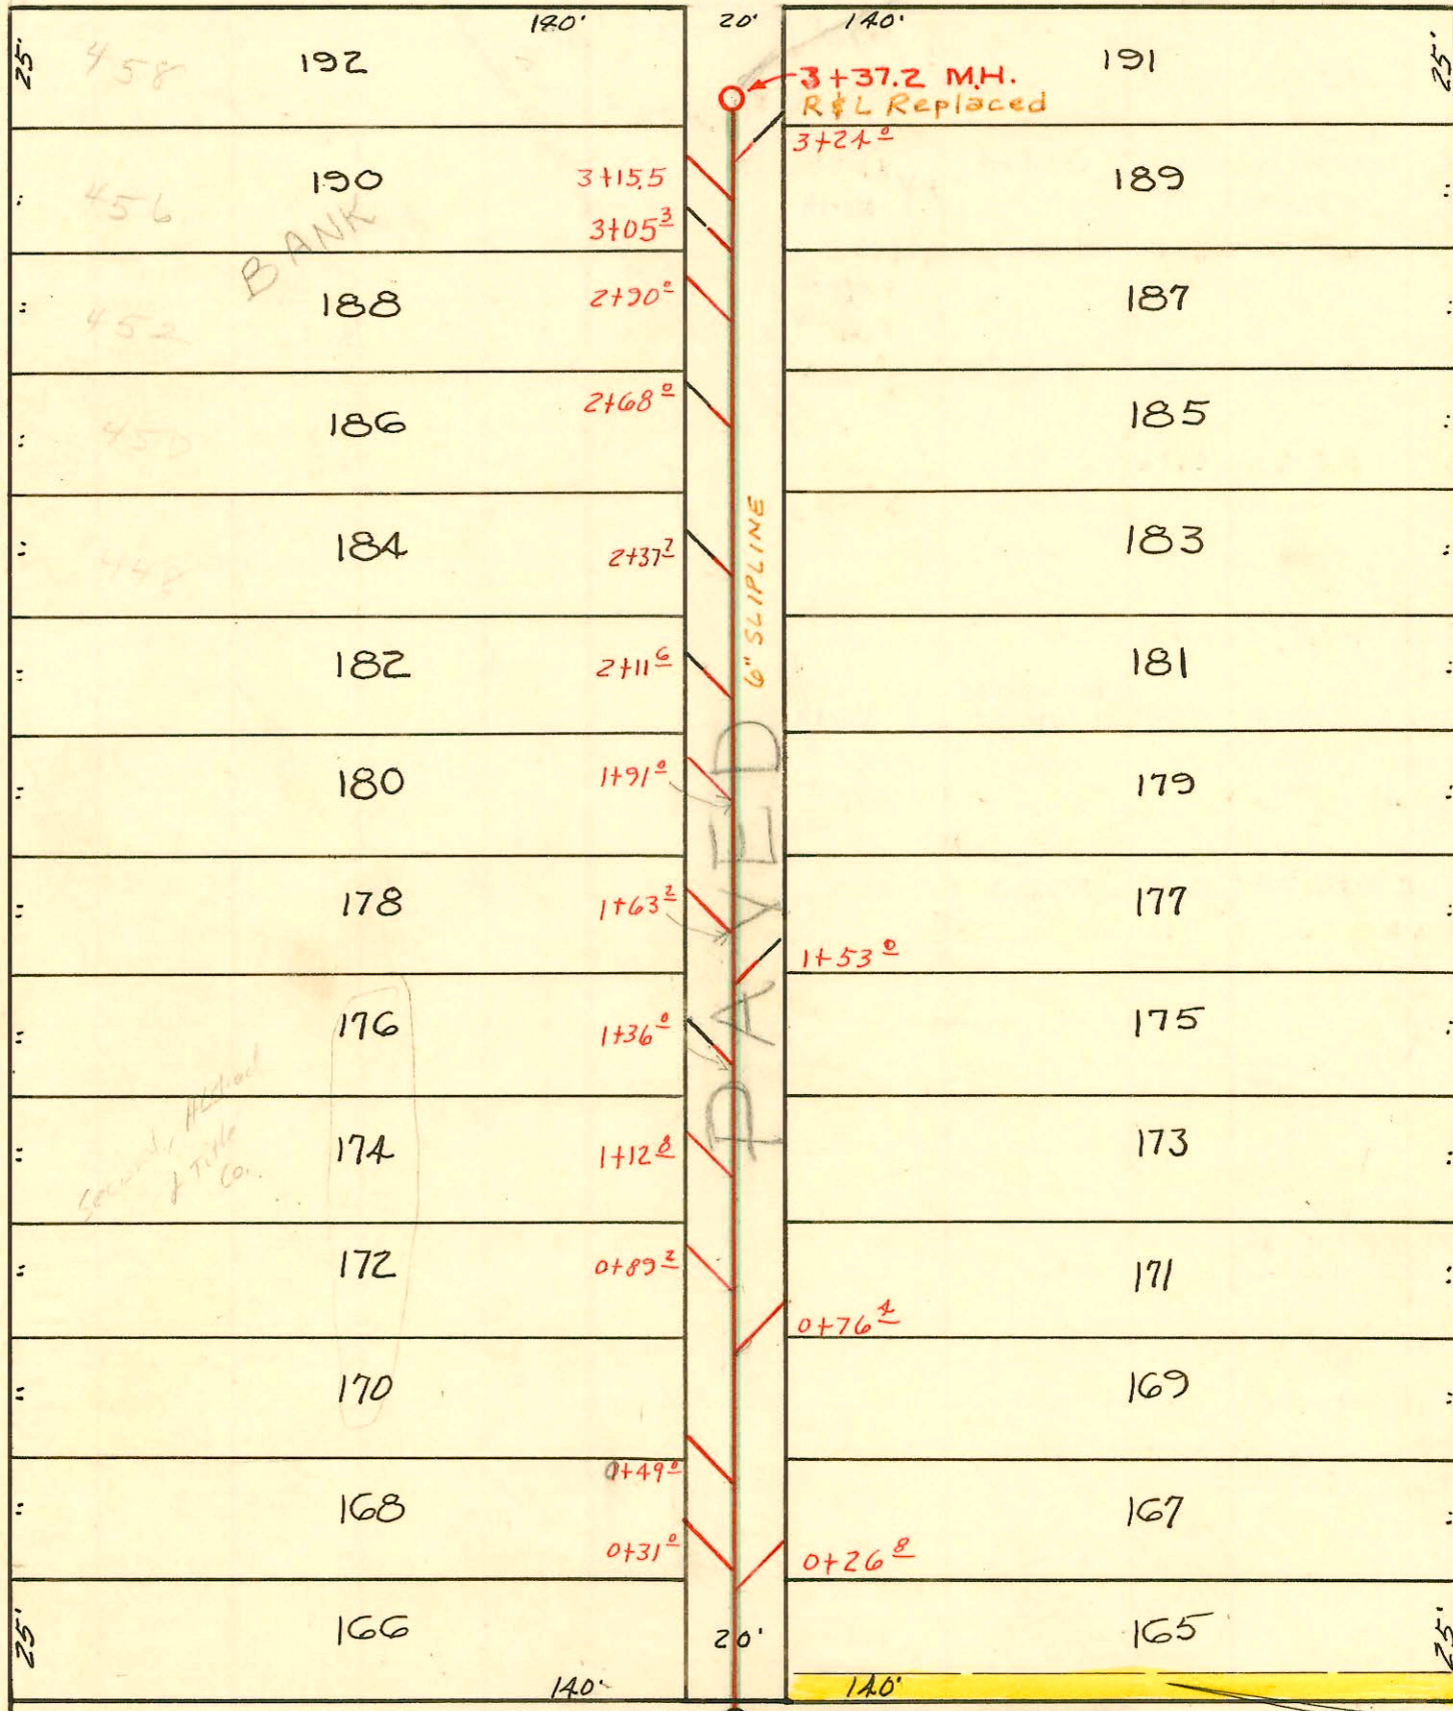 140' 20' 140'
25' 458 192 191 25'
3+37.2 M.H.
R&L Replaced
3+24º
456 190 3+15.5 189
3+05³
BANK
452 188 2+90º 187
450 186 2+68º 185
448 184 2+37² 183
6" SLIPLINE
182 2+11⁶ 181
180 1+91º 179
PAVED
178 1+63² 177
1+53º
176 1+36º 175
174 1+12⁸ 173
& Title
Co.
172 0+89² 171
0+76⁴
170 169
0+49º
168 167
0+31º 0+26⁸
25' 166 20' 165 25'
140' 140'